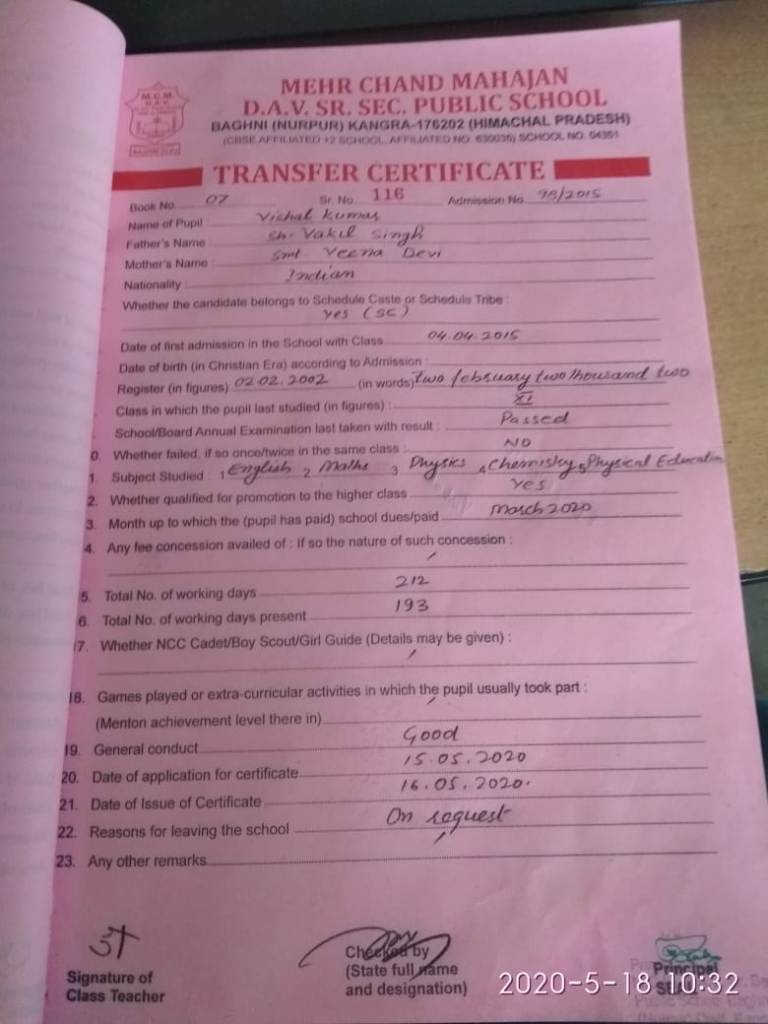 M.C.M.
D.A.V.
MEHR CHAND MAHAJAN
D.A.V. SR. SEC. PUBLIC SCHOOL
BAGHNI (NURPUR) KANGRA-176202 (HIMACHAL PRADESH)
(CBSE AFFILIATED +2 SCHOOL, AFFILIATED NO. 630035) SCHOOL NO. 04351
TRANSFER CERTIFICATE
Book No. 07 Sr. No. 116 Admission No. 98/2015
Name of Pupil Vishal Kumar
Father's Name Sh. Vakil Singh
Mother's Name Smt Veena Devi
Nationality Indian
Whether the candidate belongs to Schedule Caste or Schedule Tribe :
Yes (SC)
Date of first admission in the School with Class 04.04.2015
Date of birth (in Christian Era) according to Admission :
Register (in figures) 02.02.2002 (in words) Two february two thousand two
Class in which the pupil last studied (in figures) : XI
School/Board Annual Examination last taken with result : Passed
0. Whether failed, if so once/twice in the same class : NO
1. Subject Studied : 1 English 2 Maths 3 Physics 4 Chemistry 5 Physical Education
2. Whether qualified for promotion to the higher class Yes
3. Month up to which the (pupil has paid) school dues/paid March 2020
4. Any fee concession availed of : If so the nature of such concession :
5. Total No. of working days 212
6. Total No. of working days present 193
17. Whether NCC Cadet/Boy Scout/Girl Guide (Details may be given) :
18. Games played or extra-curricular activities in which the pupil usually took part :
(Menton achievement level there in)
19. General conduct Good
20. Date of application for certificate 15.05.2020
21. Date of Issue of Certificate 16.05.2020.
22. Reasons for leaving the school On request
23. Any other remarks
Signature of
Class Teacher
Checked by
(State full name
and designation)
Principal
2020-5-18 10:32